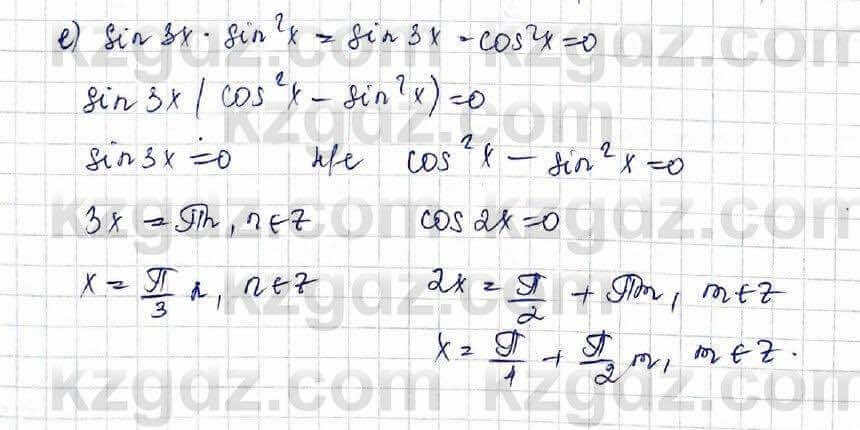 е) sin 3x · sin²x = sin 3x - cos²x = 0
sin 3x ( cos²x - sin²x ) = 0
sin 3x = 0 н/е cos²x - sin²x = 0
3x = πn, n ∈ Z cos 2x = 0
x = π/3 n, n ∈ Z 2x = π/2 + πm, m ∈ Z
x = π/4 + π/2 m, m ∈ Z.
kzgdz.com
kzgdz.com
kzgdz.com
kzgdz.com
kzgdz.com